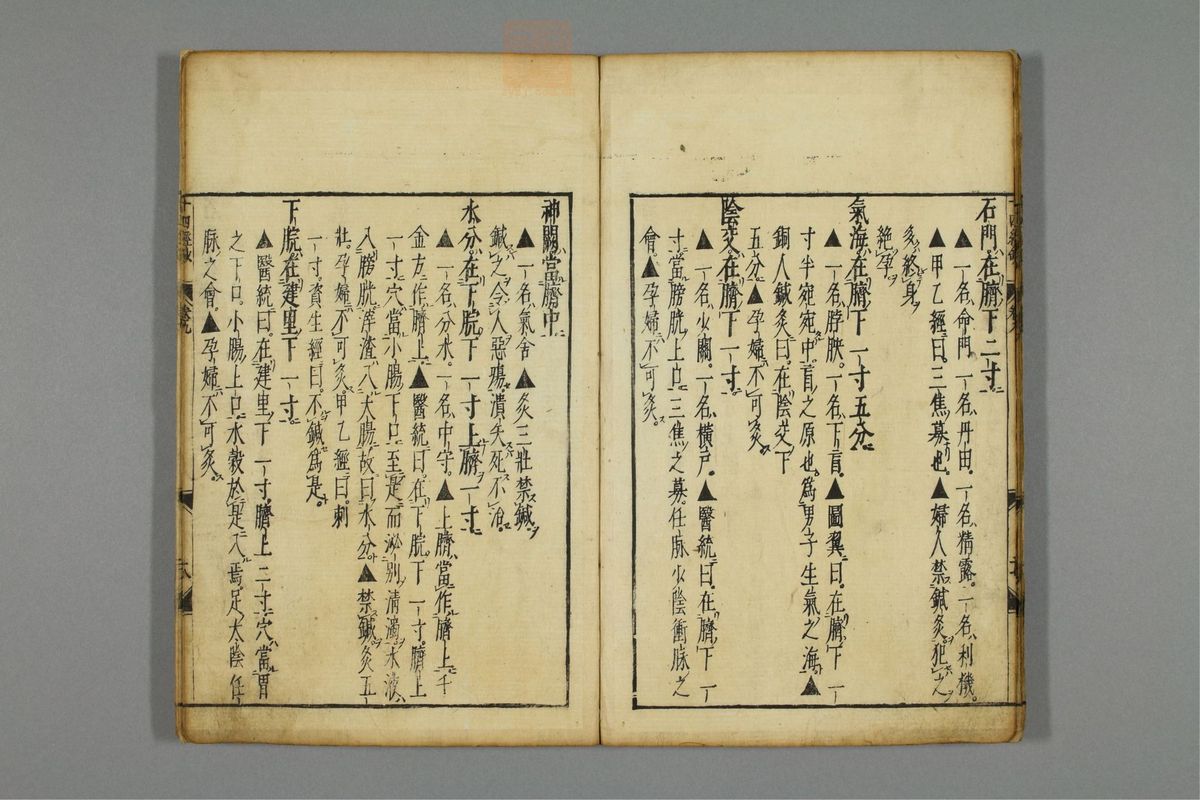 石門在臍下二寸
▲一名命門一名丹田一名精露一名利機
▲甲乙經曰三焦募也▲婦人禁鍼灸犯之
多終身
絶孕
氣海在臍下一寸五分
▲一名脖胦一名下肓▲圖翼曰在臍下一
寸半宛宛中肓之原也爲男子生氣之海▲
銅人鍼灸曰在陰交下
五分▲孕婦不可灸
陰交在臍下一寸
▲一名少關一名橫戸▲醫統曰在臍下一
寸當膀胱上口三焦之募任脉少陰衝脉之
會▲孕婦不可灸
神闕當臍中
▲一名氣舍▲灸三壯禁鍼
鍼之令人惡瘍潰矢死不治
水分在下脘下一寸上臍一寸
▲一名分水一名中守▲上臍當作臍上千
金方作臍上▲醫統曰在下脘下一寸臍上
一寸穴當小腸下口至是而泌別清濁水液
入膀胱滓渣入大腸故曰水分▲禁鍼灸五
壯孕婦不可灸甲乙經曰刺
一寸資生經曰不鍼爲是
下脘在建里下一寸
▲醫統曰在建里下一寸臍上二寸穴當胃
之下口小腸上口水穀於是入焉足太陰任
脉之會▲孕婦不可灸